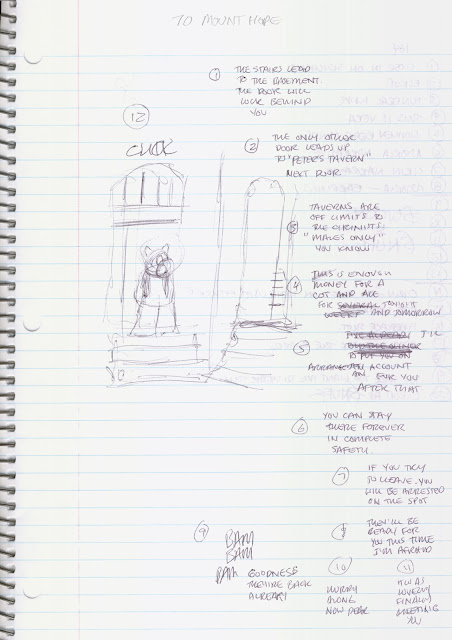 TO MOUNT HOPE
1
THE STAIRS LEAD
TO THE BASEMENT.
THE DOOR WILL
LOCK BEHIND
YOU
12
CLICK
2
THE ONLY OTHER
DOOR LEADS UP
TO "PETER'S TAVERN"
NEXT DOOR
3
TAVERNS ARE
OFF LIMITS TO
THE CIRINISTS
"MALES ONLY"
YOU KNOW
4
THIS IS ENOUGH
MONEY FOR A
COT AND ALE
FOR SEVERAL TONIGHT
WEEKS AND TOMORROW
5
I'VE ALREADY
TO PUT YOU ON
ACCOUNT
AN FOR YOU
AFTER THAT
6
YOU CAN STAY
THERE FOREVER
IN COMPLETE
SAFETY.
7
IF YOU TRY
TO LEAVE, YOU
WILL BE ARRESTED
ON THE SPOT
8
THEY'LL BE
READY FOR
YOU THIS TIME
I'M AFRAID
9
BAM
BAM
BAM GOODNESS
THEY'RE BACK
ALREADY
10
HURRY
ALONG
NOW DEAR
11
IT WAS
LOVELY
FINALLY
MEETING
YOU